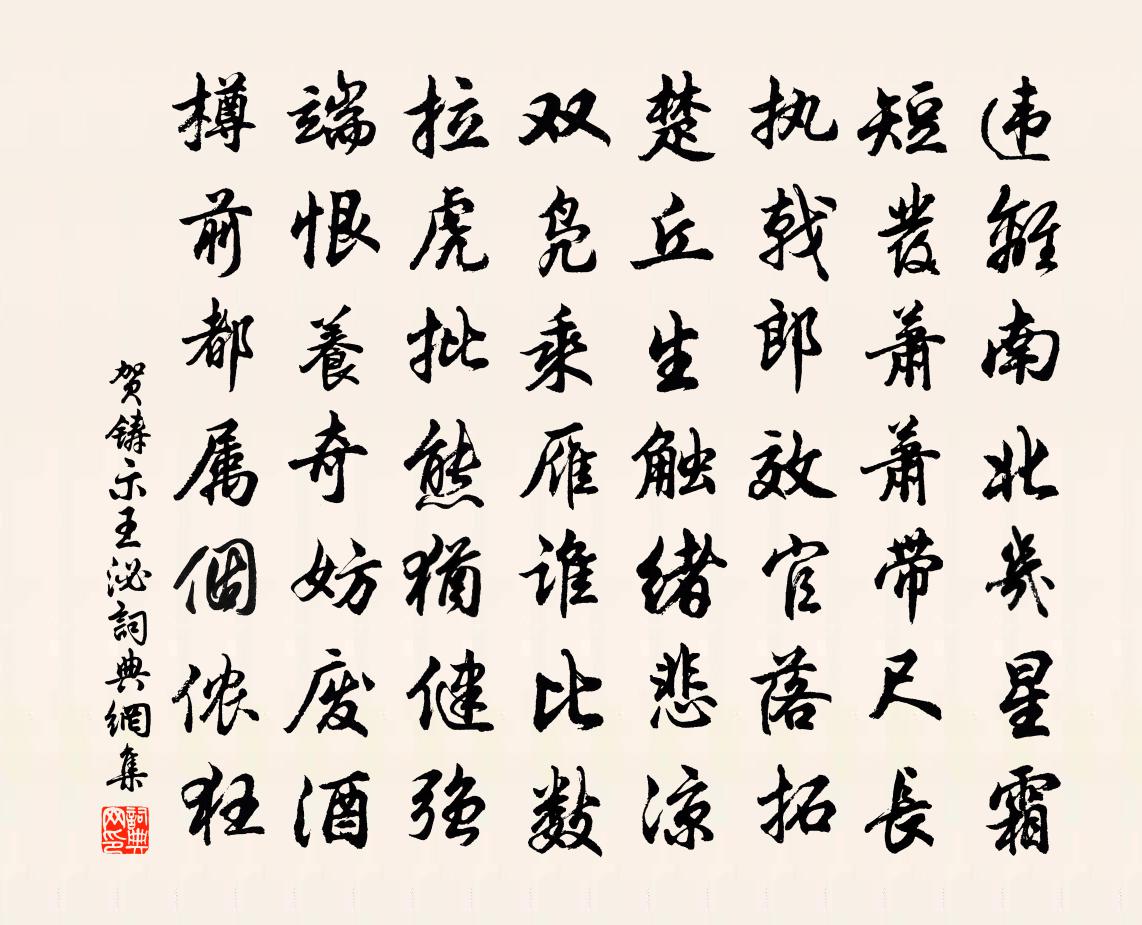 违离南北几星霜
短发萧萧带尺长
执戟郎效官落拓
楚丘生触绪悲凉
双凫乘雁谁比数
拉虎批熊犹健强
端恨养奇妨废酒
樽前都属個侬狂
贺鑄示王泌詞典網集
詞典网印